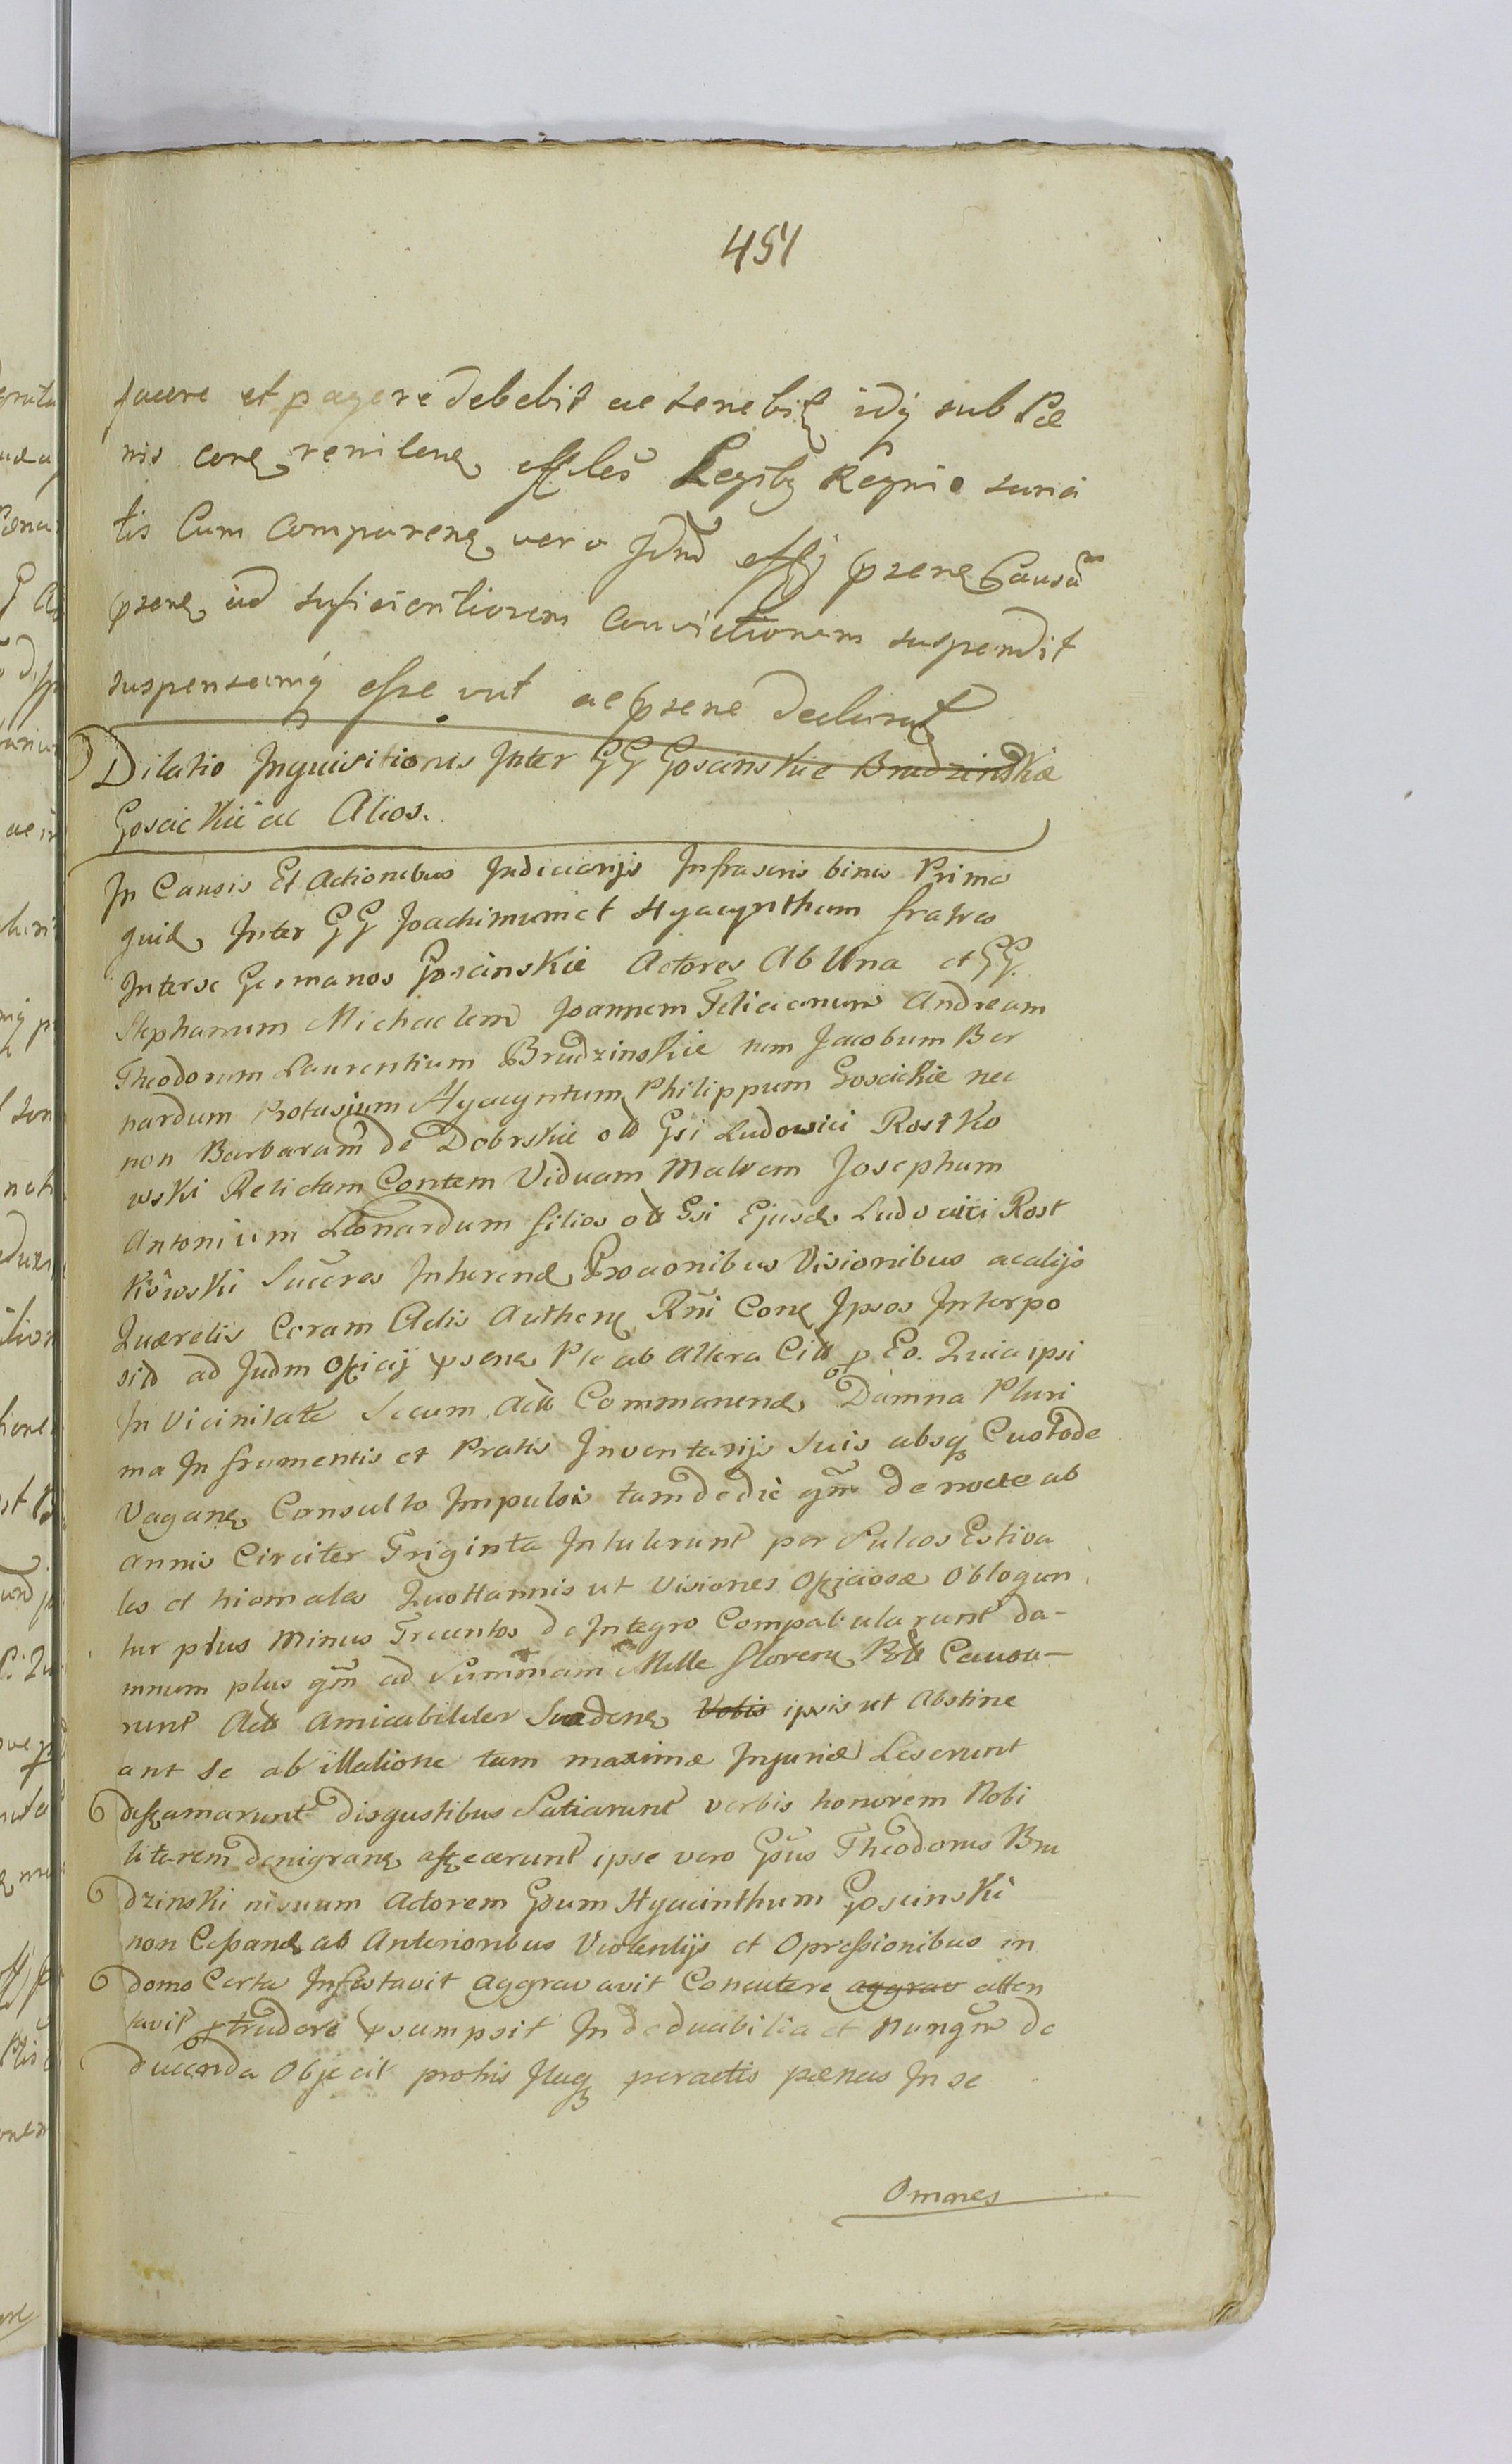 451
facere et pagere debebit ac tenebit idq sub Pæ
nis con renitene Legibq Regni sanci
tis Cum comparene vero Judm offi prsene Causā
prsene ad suficientiorem convictionem suspendit
suspensamq esse vult ac prsene declarat
Dilatio Inquisitionis Inter GG Goscinskie Brudzinskie
Goscickie ac Alios.
In Causis Et Actionibus Judiciarijs Infrascris binis Primo
quid Inter GG Joachimum et Hyacynthum fratres
Interse Germanos Goscinskie Actores Ab Una et GG.
Stephanum Michaelem Joannem Felicianum Andream
Theodorum Laurentium Brudzinskie nem Jacobum Ber
nardum Protasium Hyacyntum Philippum Goscickie nec
non Barbaram de Dobrskie olb Gsi Ludowici Rostko
wski Relictam Contem Viduam Matrem Josephum
Antonium Leonardum filios olb Gsi Ejusd Ludovici Rost
kowski Succres Inherend Proonibus Visionibus ac alijs
Quærelis Coram Actis Authene Rni Cone Ipsos Interpo
sit ad Judm Officij prsene Pte ab Altera Citt p Eo. Quia ipsi
In Vicinitate Secum Actt Commanend Damna Pluri
ma In frumentis et Pratis Inventarijs Suis absq Custode
Vagane Consulto Impulsis tam de die qm de nocte ab
annis Circiter Triginta Intulerunt per Sulcos Estiva
les et hiemales Quottannis ut Visiones Officiosæ Obloqun
tur plus Minus Trecentos de Integro Compabularunt da-
mnum plus qm ad Summam Mille floren Pol Causa-
runt Actt Amicabiliter Suadene Vobis ipsis ut Abstine
ant Se ab illatione tam maximæ Injuriæ Leserunt
diffamarunt disgustibus Satiarunt verbis honorem Nobi
litarem denigrane affecerunt ipse vero Gsus Theodorus Bru
dzinski nisuum Actorem Gsum Hyacinthum Goscinski
non Cessand ab Anterioribus Violentijs et Opressionibus in
domo Certa Infestavit Aggravavit Concutere aggrav atten
tavit ptrudere prsumpsit Indeducibilia et nunqm de
ducenda Objecit prohis Itaq peractis pænas In se
Omnes